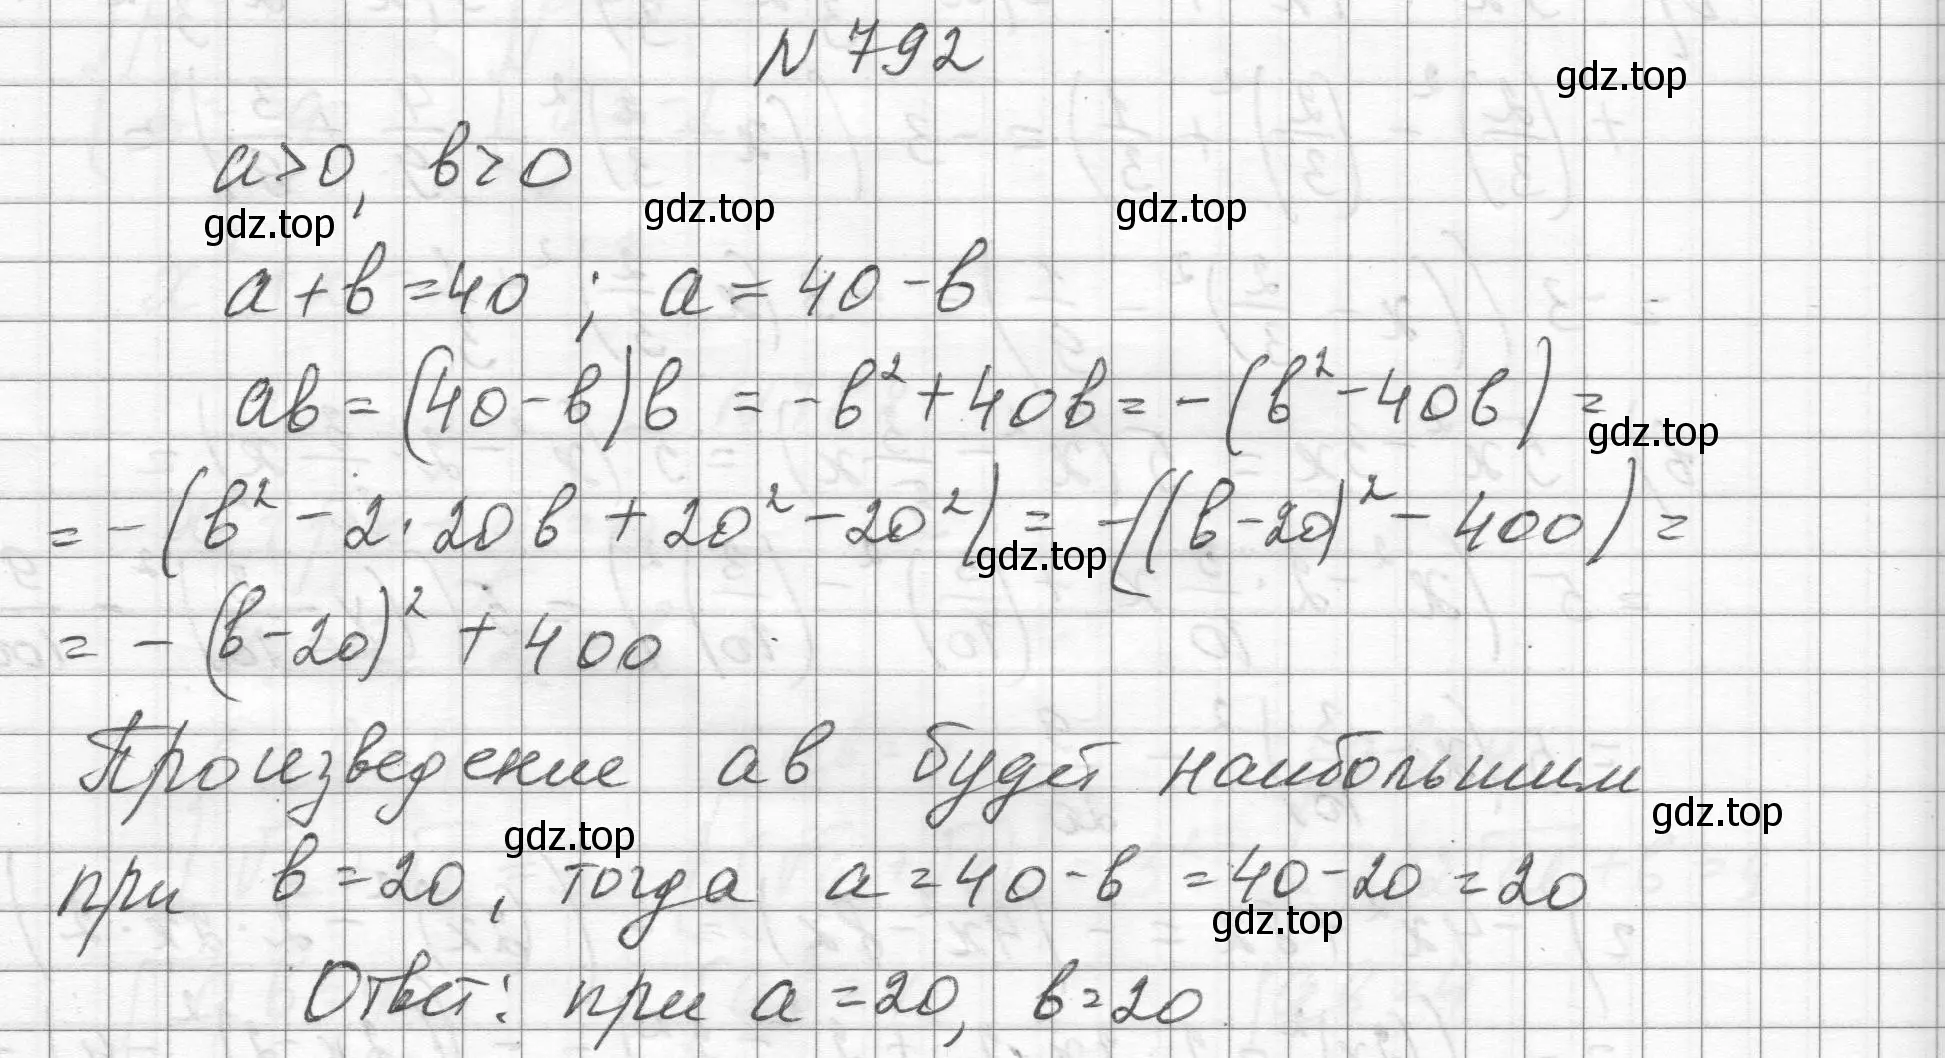 N 792
gdz.top
a>0, b>0
gdz.top gdz.top gdz.top
a+b=40 ; a=40-b
ab=(40-b)b = -b²+40b = -(b²-40b) =
gdz.top
= -(b²-2·20b+20²-20²) = -((b-20)²-400) =
gdz.top
= -(b-20)²+400
Произведение ab будет наибольшим
gdz.top gdz.top
при b=20, тогда a=40-b=40-20=20
gdz.top
Ответ: при a=20, b=20.